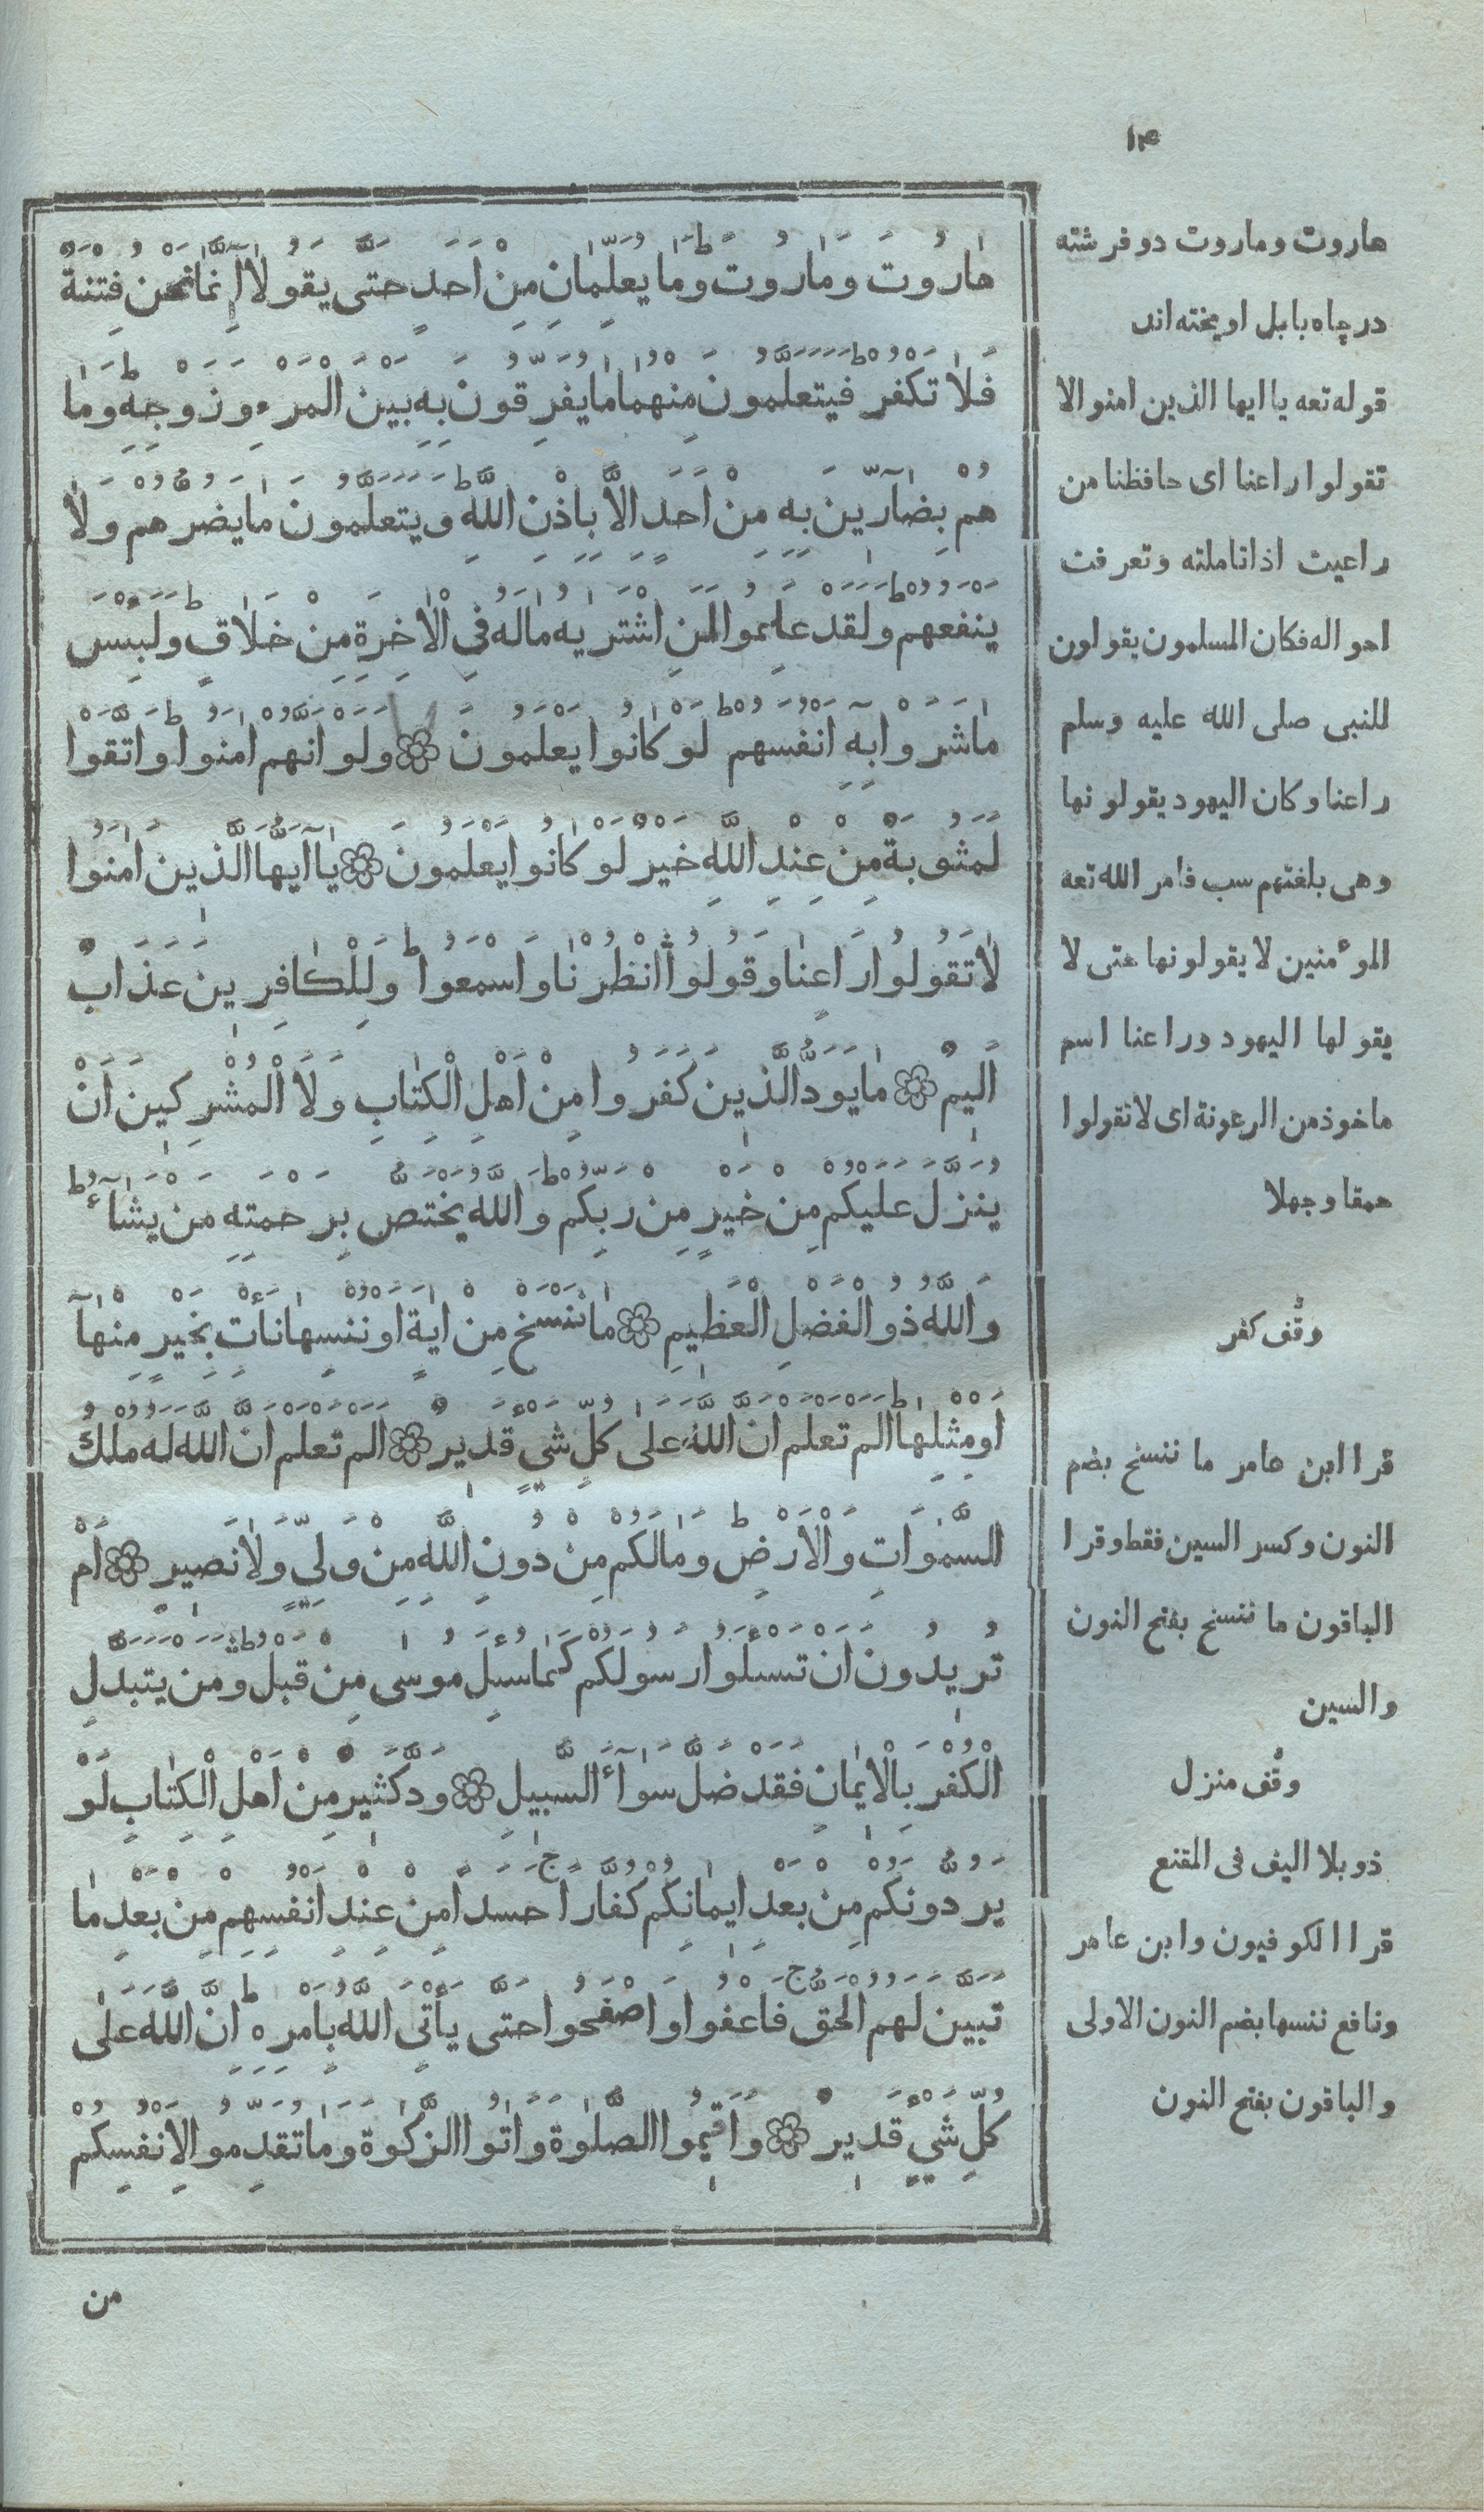 ١٤
هَارُوتَ وَمَارُوتَ ط وَمَا يُعَلِّمَانِ مِنْ اَحَدٍ حَتَّى يَقُولَا اِنَّمَا نَحْنُ فِتْنَةٌ
فَلَا تَكْفُرْ ط فَيَتَعَلَّمُونَ مِنْهُمَا مَا يُفَرِّقُونَ بِهِ بَيْنَ الْمَرْءِ وَزَوْجِهِ ط وَمَا
هُمْ بِضَآرِّينَ بِهِ مِنْ اَحَدٍ اِلَّا بِاِذْنِ اللَّهِ ط وَيَتَعَلَّمُونَ مَا يَضُرُّهُمْ وَلَا
يَنْفَعُهُمْ ط وَلَقَدْ عَلِمُوا لَمَنِ اشْتَرٰيهُ مَا لَهُ فِى الْاٰخِرَةِ مِنْ خَلَاقٍ ط وَلَبِئْسَ
مَا شَرَوْا بِهِ اَنْفُسَهُمْ ط لَوْ كَانُوا يَعْلَمُونَ ۝ وَلَوْ اَنَّهُمْ اٰمَنُوا وَاتَّقَوْا
لَمَثُوبَةٌ مِنْ عِنْدِ اللَّهِ خَيْرٌ لَوْ كَانُوا يَعْلَمُونَ ۝ يَا اَيُّهَا الَّذِينَ اٰمَنُوا
لَا تَقُولُوا رَاعِنَا وَقُولُوا انْظُرْنَا وَاسْمَعُوا ط وَلِلْكَافِرِينَ عَذَابٌ
اَلِيمٌ ۝ مَا يَوَدُّ الَّذِينَ كَفَرُوا مِنْ اَهْلِ الْكِتَابِ وَلَا الْمُشْرِكِينَ اَنْ
يُنَزَّلَ عَلَيْكُمْ مِنْ خَيْرٍ مِنْ رَبِّكُمْ ط وَاللَّهُ يَخْتَصُّ بِرَحْمَتِهِ مَنْ يَشَآءُ ط
وَاللَّهُ ذُو الْفَضْلِ الْعَظِيمِ ۝ مَا نَنْسَخْ مِنْ اٰيَةٍ اَوْ نُنْسِهَا نَأْتِ بِخَيْرٍ مِنْهَآ
اَوْ مِثْلِهَا ط اَلَمْ تَعْلَمْ اَنَّ اللَّهَ عَلَى كُلِّ شَىْءٍ قَدِيرٌ ۝ اَلَمْ تَعْلَمْ اَنَّ اللَّهَ لَهُ مُلْكُ
السَّمٰوَاتِ وَالْاَرْضِ ط وَمَا لَكُمْ مِنْ دُونِ اللَّهِ مِنْ وَلِىٍّ وَلَا نَصِيرٍ ۝ اَمْ
تُرِيدُونَ اَنْ تَسْـَٔلُوا رَسُولَكُمْ كَمَا سُئِلَ مُوسَى مِنْ قَبْلُ ط وَمَنْ يَتَبَدَّلِ
الْكُفْرَ بِالْاِيمَانِ فَقَدْ ضَلَّ سَوَآءَ السَّبِيلِ ۝ وَدَّ كَثِيرٌ مِنْ اَهْلِ الْكِتَابِ لَوْ
يَرُدُّونَكُمْ مِنْ بَعْدِ اِيمَانِكُمْ كُفَّارًا ج حَسَدًا مِنْ عِنْدِ اَنْفُسِهِمْ مِنْ بَعْدِ مَا
تَبَيَّنَ لَهُمُ الْحَقُّ ج فَاعْفُوا وَاصْفَحُوا حَتَّى يَأْتِىَ اللَّهُ بِاَمْرِهِ ط اِنَّ اللَّهَ عَلَى
كُلِّ شَىْءٍ قَدِيرٌ ۝ وَاَقِيمُوا الصَّلٰوةَ وَاٰتُوا الزَّكٰوةَ وَمَا تُقَدِّمُوا لِاَنْفُسِكُمْ
من
هاروت وماروت دو فرشته
در چاه بابل اويخته اند
قوله تعه يا ايها الذين امنوا لا
تقولوا راعنا اى حافظنا من
راعيت اذا تاملته وتعرفت
احواله فكان المسلمون يقولون
للنبى صلى الله عليه وسلم
راعنا وكان اليهود يقولونها
وهى بلغتهم سب فامر الله تعه
الموٴمنين لا يقولونها حتى لا
يقولها اليهود وراعنا اسم
ماخوذ من الرعونة اى لا تقولوا
حمقا وجهلا
وقف كفر
قرا ابن عامر ما ننسخ بضم
النون وكسر السين فقط وقرا
الباقون ما ننسخ بفتح النون
والسين
وقف منزل
ذو بلا اليف فى المقنع
قرا الكوفيون وابن عامر
ونافع ننسها بضم النون الاولى
والباقون بفتح النون